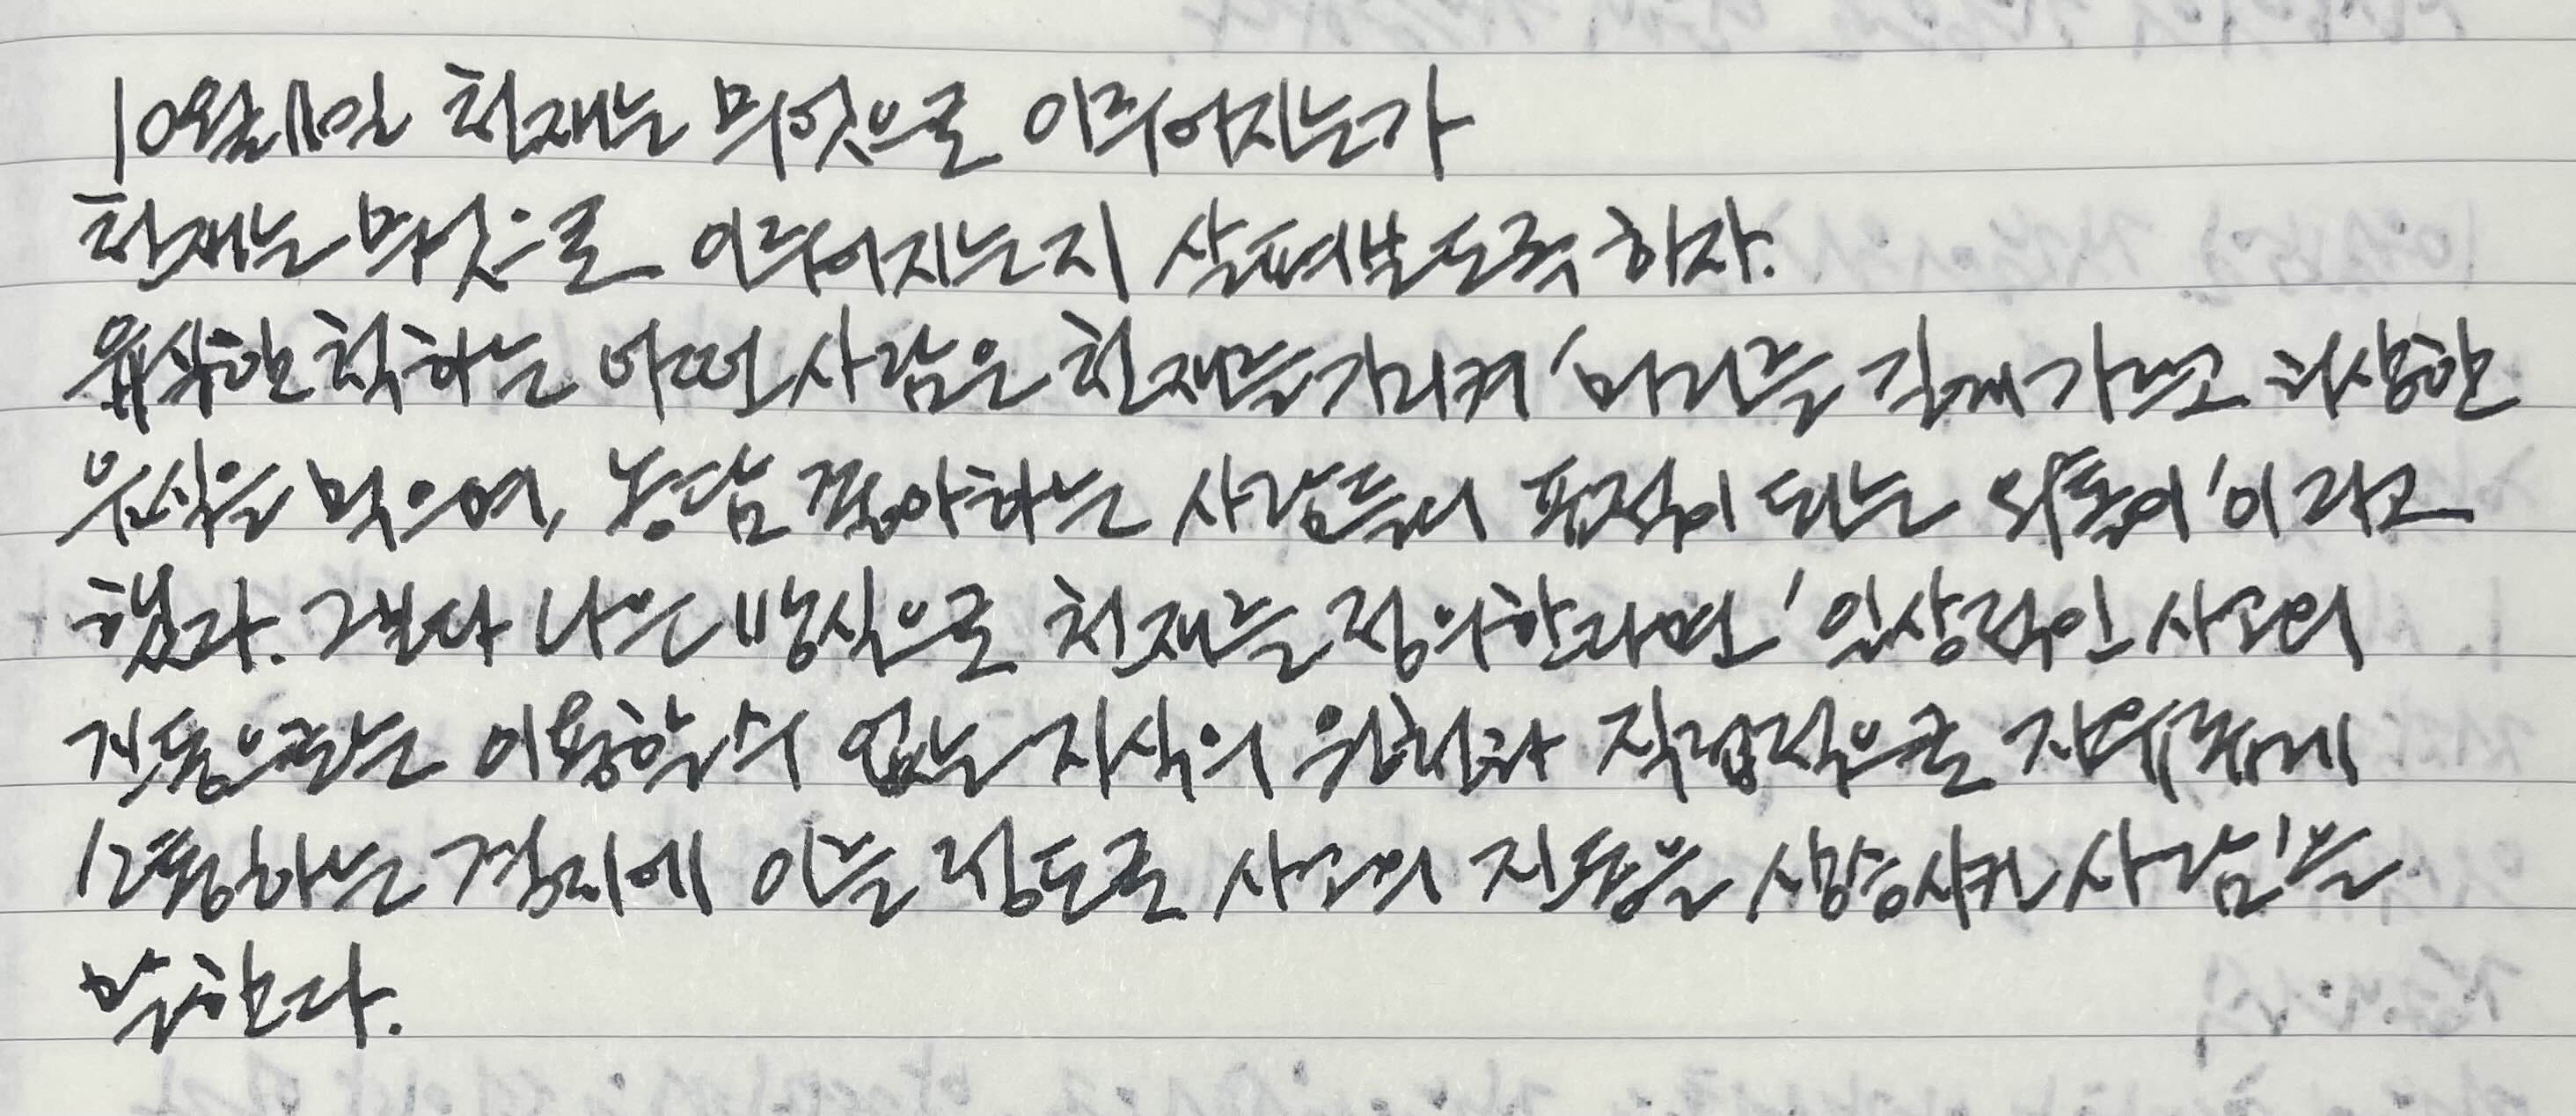 10월 11일 천재는 무엇으로 이루어지는가
천재는 무엇으로 이루어지는지 살펴보도록 하자.
유식한 척하는 어떤 사람은 천재를 가리켜 '머리를 길게 기르고 괴상한
음식을 먹으며, 농담 좋아하는 사람들의 표적이 되는 외톨이'이라고
했다. 그보다 나은 방식으로 천재를 정의한다면 '일상적인 사고의
진동으로는 이용할 수 없는 지식의 원천과 직접적으로 자유롭게
소통하는 경지에 이를 정도로 사고의 진동을 상승시킨 사람'을
말한다.